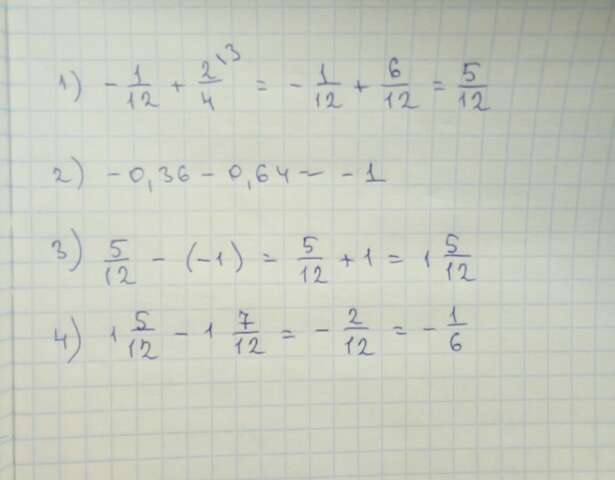 1) - 1/12 + 2\3/4 = - 1/12 + 6/12 = 5/12
2) - 0,36 - 0,64 = - 1
3) 5/12 - (-1) = 5/12 + 1 = 1 5/12
4) 1 5/12 - 1 7/12 = - 2/12 = - 1/6